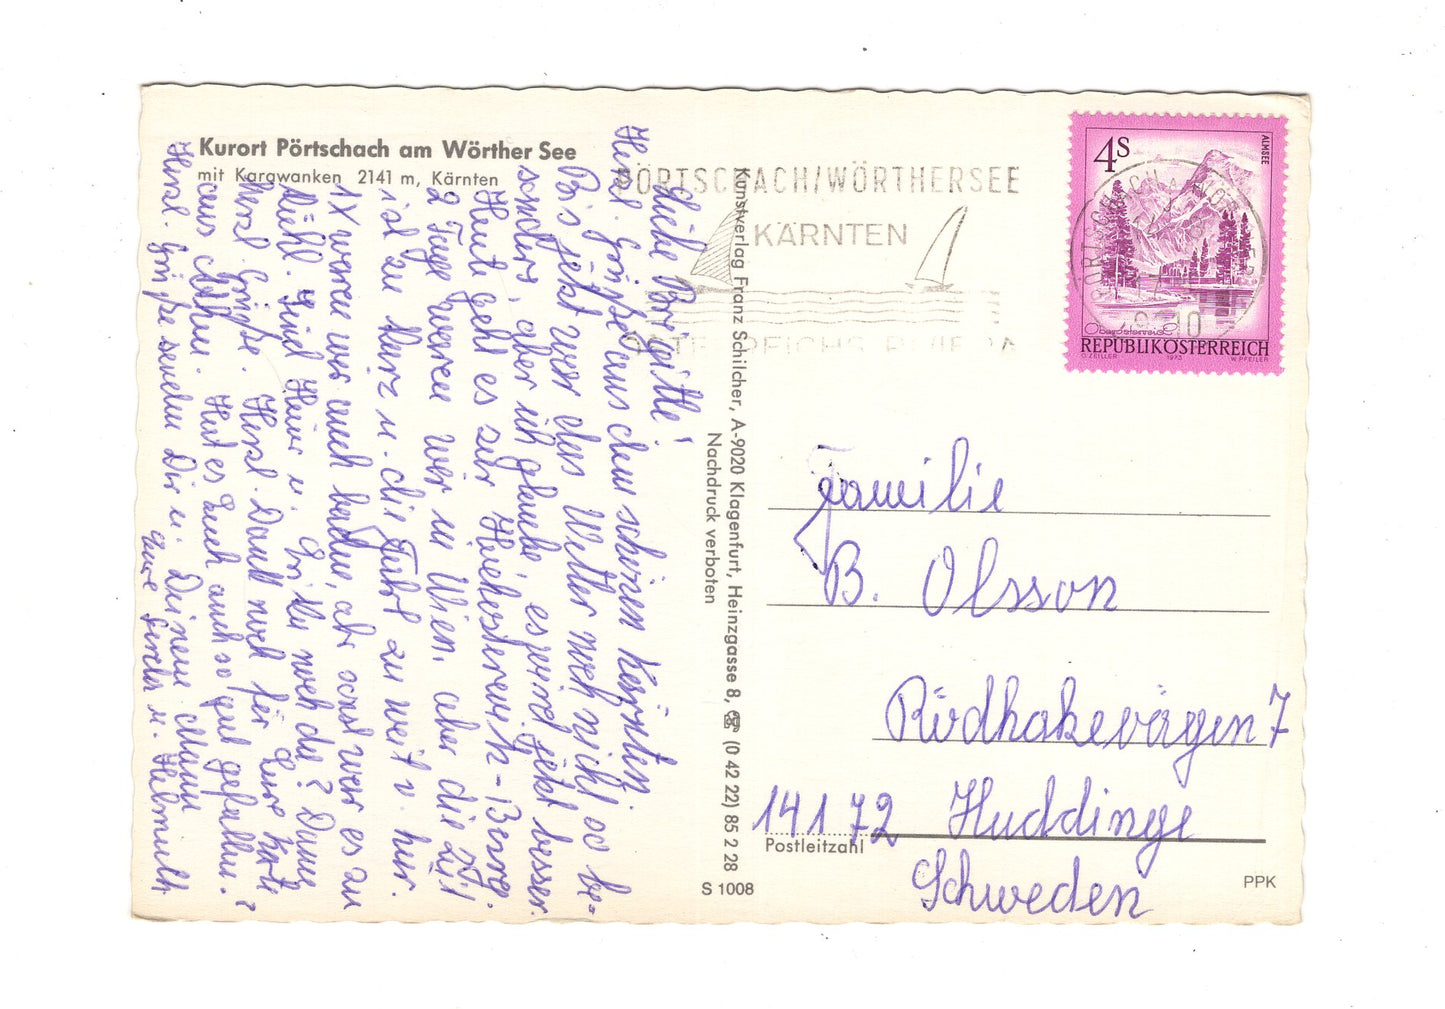 Kurort Pörtschach am Wörther See
mit Karawanken 2141 m, Kärnten
Liebe Brigitte!
Herzl. Grüße aus dem schönen Kärnten.
Bis jetzt war das Wetter noch nicht so be=
sonders, aber ich glaube, es wird jetzt besser.
Heute geht es zur Hochosterwitz-Burg.
2 Tage waren wir in Wien, aber die Zeit
ist zu kurz u. die Fahrt zu weit v. hier.
1X waren wir auch baden, aber sonst war es zu
kühl. Sind Heinz u. noch da? Dann
herzl. Grüße. Herzl. Dank noch für Eure Karte
aus Athen. Hat es Euch auch so gut gefallen?
Herzl. Grüße senden Dir u. Deinem Mann
Eure Gerda u. Helmuth
Kunstverlag Franz Schilcher, A-9020 Klagenfurt, Heinzgasse 8, ☎ (0 42 22) 85 2 28
Nachdruck verboten
S 1008
PÖRTSCHACH/WÖRTHERSEE
KÄRNTEN
ÖSTERREICHS RIVIERA
4S
ALMSEE
Oberösterreich
REPUBLIK ÖSTERREICH
O. ZEILLER 1973 W. PFEILER
Familie
B. Olsson
Rödhakevägen 7
14172 Huddinge
Postleitzahl
Schweden
PPK